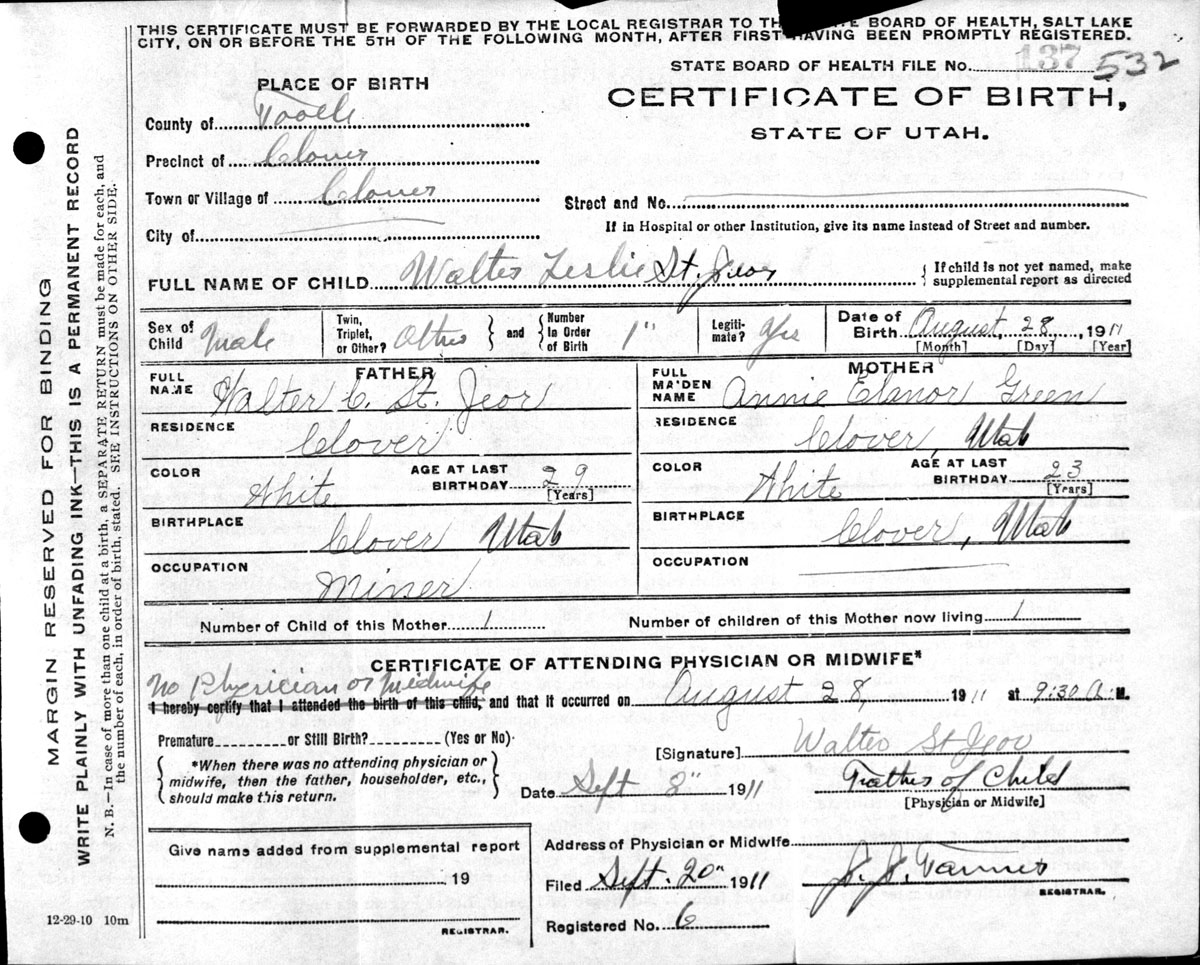 THIS CERTIFICATE MUST BE FORWARDED BY THE LOCAL REGISTRAR TO TH BOARD OF HEALTH, SALT LAKE
CITY, ON OR BEFORE THE 5TH OF THE FOLLOWING MONTH, AFTER FIRST HAVING BEEN PROMPTLY REGISTERED.
STATE BOARD OF HEALTH FILE No. 137 532
PLACE OF BIRTH
CERTIFICATE OF BIRTH,
STATE OF UTAH.
County of Tooele
Precinct of Clover
Town or Village of Clover
Street and No.
City of
If in Hospital or other Institution, give its name instead of Street and number.
FULL NAME OF CHILD Walter Leslie St. Jeor
{ If child is not yet named, make
supplemental report as directed
Sex of Child Male
Twin, Triplet, or Other? Other } and { Number in Order of Birth 1"
Legitimate? Yes
Date of Birth August, 28, 1911
[Month] [Day] [Year]
FATHER
FULL NAME Walter C. St. Jeor
RESIDENCE Clover
COLOR White
AGE AT LAST BIRTHDAY 29
[Years]
BIRTHPLACE Clover Utah
OCCUPATION Miner
MOTHER
FULL MAIDEN NAME Annie Elanor Green
RESIDENCE Clover, Utah
COLOR White
AGE AT LAST BIRTHDAY 23
[Years]
BIRTHPLACE Clover, Utah
OCCUPATION
Number of Child of this Mother 1
Number of children of this Mother now living 1
CERTIFICATE OF ATTENDING PHYSICIAN OR MIDWIFE*
No Physician or Midwife
I hereby certify that I attended the birth of this child, and that it occurred on August 28, 1911 at 9:30 A. M.
Premature or Still Birth? (Yes or No).
[Signature] Walter St Jeor
{ *When there was no attending physician or
midwife, then the father, householder, etc.,
should make this return. }
Date Sept 8" 1911
Father of Child
[Physician or Midwife]
Give name added from supplemental report
19
REGISTRAR.
Address of Physician or Midwife
Filed Sept. 20" 1911
J. J. Tanner
REGISTRAR.
Registered No. 6
12-29-10 10m
MARGIN RESERVED FOR BINDING
WRITE PLAINLY WITH UNFADING INK—THIS IS A PERMANENT RECORD
N. B.—In case of more than one child at a birth, a SEPARATE RETURN must be made for each, and
the number of each, in order of birth, stated. SEE INSTRUCTIONS ON OTHER SIDE.